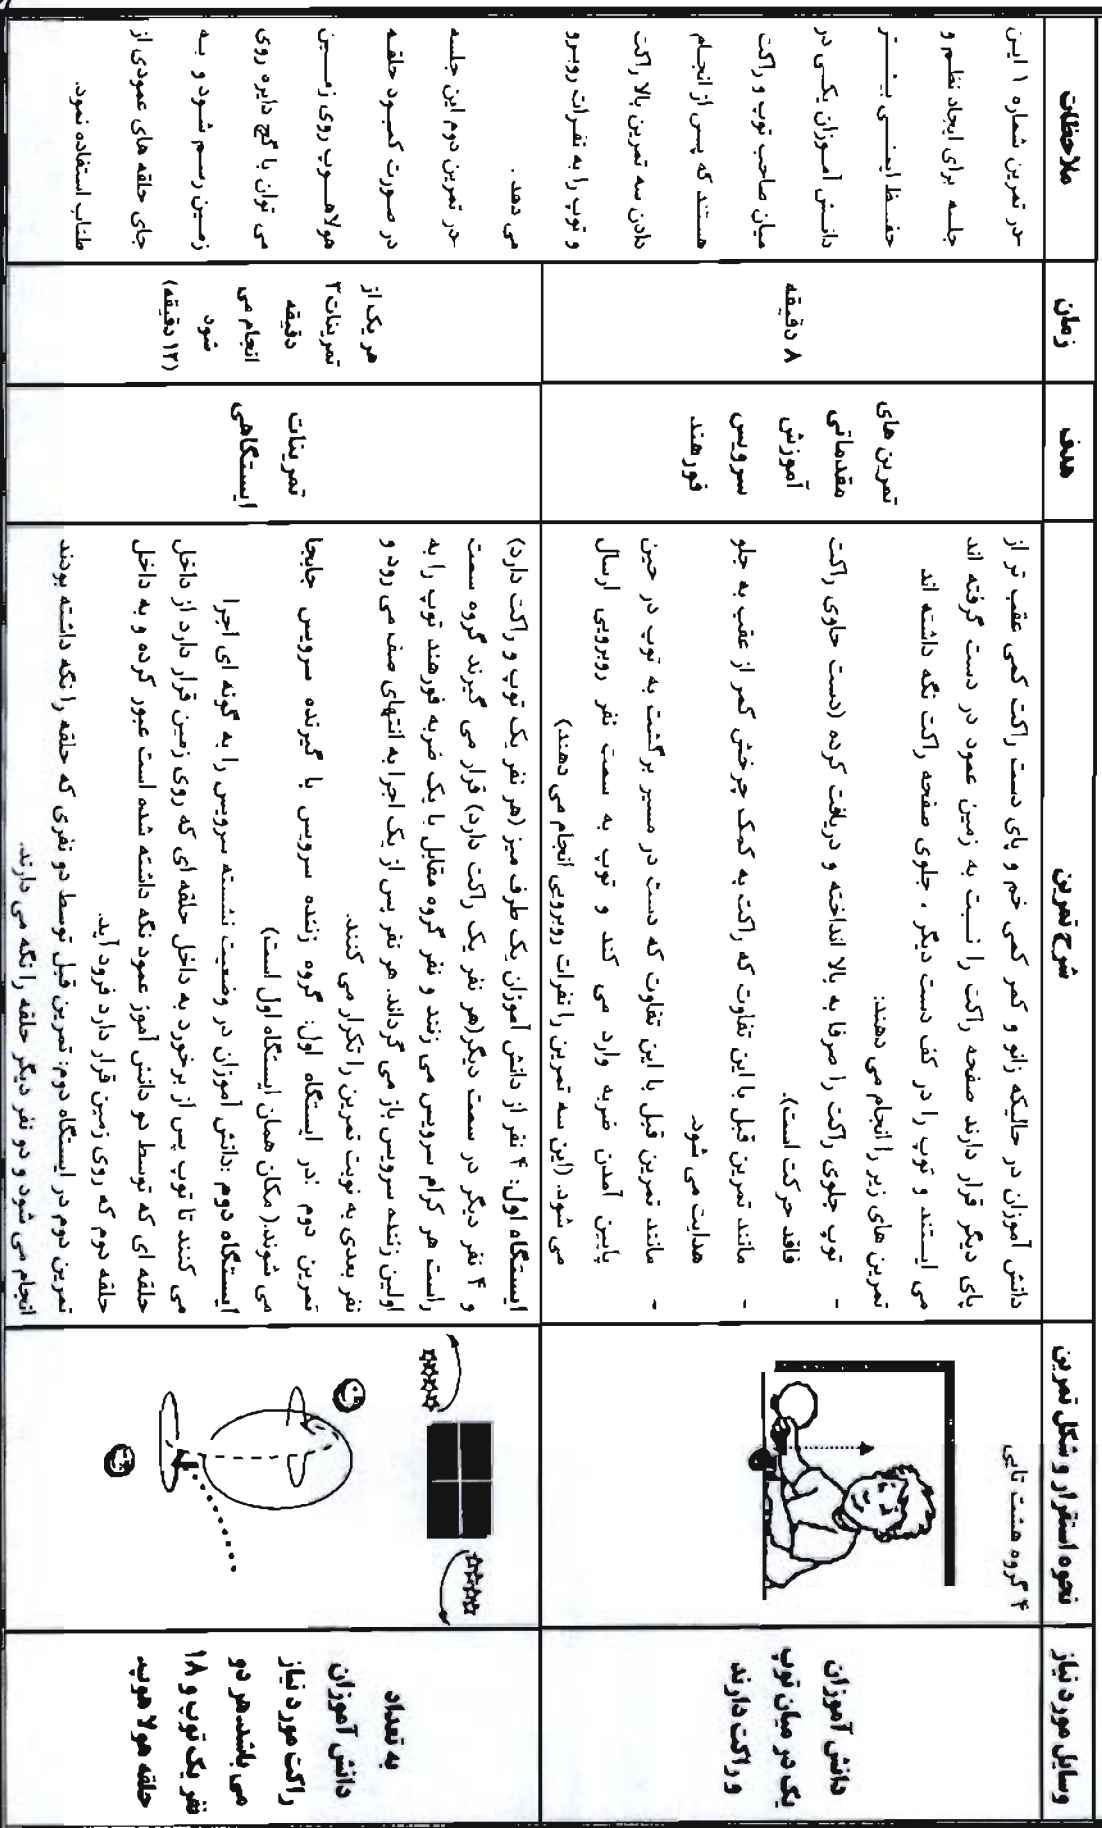 وسایل مورد نیاز
نحوه استقرار و شکل تمرین
شرح تمرین
هدف
زمان
ملاحظات
دانش آموزان
یک در میان توپ
و راکت دارند
۴ گروه هشت تایی
دانش آموزان در حالیکه زانو و کمر کمی خم و پای دست راکت کمی عقب تر از
پای دیگر قرار دارند صفحه راکت را نسبت به زمین عمود در دست گرفته اند
می ایستند و توپ را در کف دست دیگر ، جلوی صفحه راکت نگه داشته اند
تمرین های زیر را انجام می دهند:
- توپ جلوی راکت را صرفا به بالا انداخته و دریافت کرده (دست حاوی راکت
فاقد حرکت است).
- مانند تمرین قبل با این تفاوت که راکت به کمک چرخش کمر از عقب به جلو
هدایت می شود.
- مانند تمرین قبل با این تفاوت که دست در مسیر برگشت به توپ در حین
پایین آمدن ضربه وارد می کند و توپ به سمت نفر روبرویی ارسال
می شود. (این سه تمرین را نفرات روبرویی انجام می دهند)
تمرین های
مقدماتی
آموزش
سرویس
فورهند
۸ دقیقه
-در تمرین شماره ۱ این
جلسه برای ایجاد نظم و
حفظ ایمنی بیشتر
دانش آموزان یکی در
میان صاحب توپ و راکت
هستند که پس از انجام
دادن سه تمرین بالا راکت
و توپ را به نفرات روبرو
می دهد .
-در تمرین دوم این جلسه
در صورت کمبود حلقه
هولاهوپ روی زمین
می توان با گچ دایره روی
زمین رسم شود و به
جای حلقه های عمودی از
طناب استفاده نمود.
به تعداد
دانش آموزان
راکت مورد نیاز
می باشد.هر دو
نفر یک توپ و ۱۸
حلقه هولا هوپ
ایستگاه اول: ۴ نفر از دانش آموزان یک طرف میز (هر نفر یک توپ و راکت دارد)
و ۴ نفر دیگر در سمت دیگر(هر نفر یک راکت دارد) قرار می گیرند گروه سمت
راست هر کرام سرویس می زنند و نفر گروه مقابل با یک ضربه فورهند توپ را به
اولین زننده سرویس باز می گرداند. هر نفر پس از یک اجرا به انتهای صف می رود و
نفر بعدی به نوبت تمرین را تکرار می کنند.
تمرین دوم :در ایستگاه اول: گروه زننده سرویس با گیرنده سرویس جابجا
می شوند.( مکان همان ایستگاه اول است)
ایستگاه دوم :دانش آموزان در وضعیت نشسته سرویس را به گونه ای اجرا
می کنند تا توپ پس از برخورد به داخل حلقه ای که روی زمین قرار دارد از داخل
حلقه ای که توسط دو دانش آموز عمود نگه داشته شده است عبور کرده و به داخل
حلقه دوم که روی زمین قرار دارد فرود آید.
تمرین دوم در ایستگاه دوم: تمرین قبل توسط دو نفری که حلقه را نگه داشته بودند
انجام می شود و دو نفر دیگر حلقه را نگه می دارند.
تمرینات
ایستگاهی
هر یک از
تمرینات ۳
دقیقه
انجام می
شود
(۱۲ دقیقه)